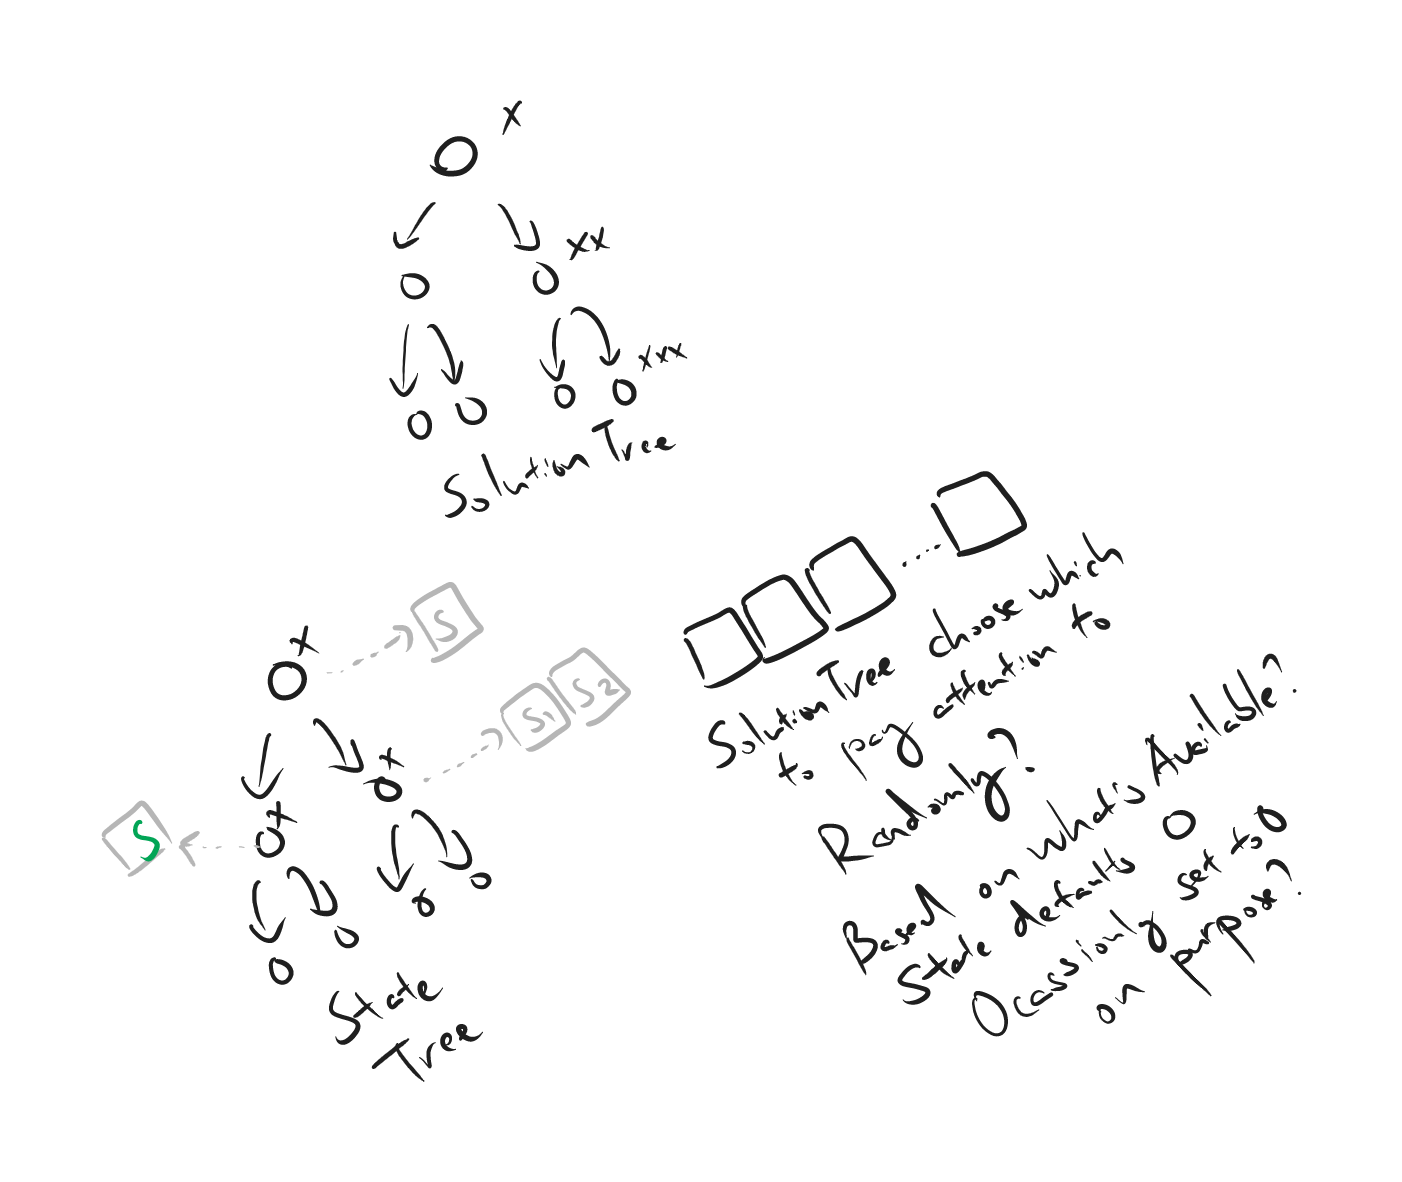 x
xx
xxx
Solution Tree
S
x
S1 S2
x
S
x
State
Tree
Solution Tree choose which
to pay attention to
Randomly?
Based on what's Available?
State defaults 0
Ocassionly set to 0
on purpose?